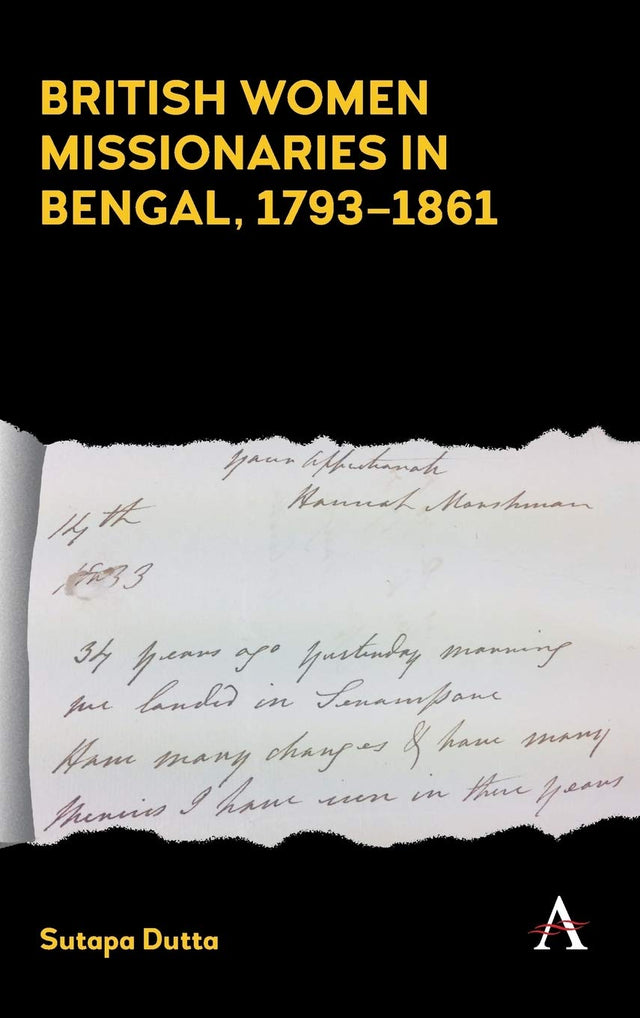 BRITISH WOMEN
MISSIONARIES IN
BENGAL, 1793–1861
Hannah Marshman
14th
1833
34 years ago yesterday morning
we landed in Serampore
How many changes & how many
I have seen in these years
Sutapa Dutta
A